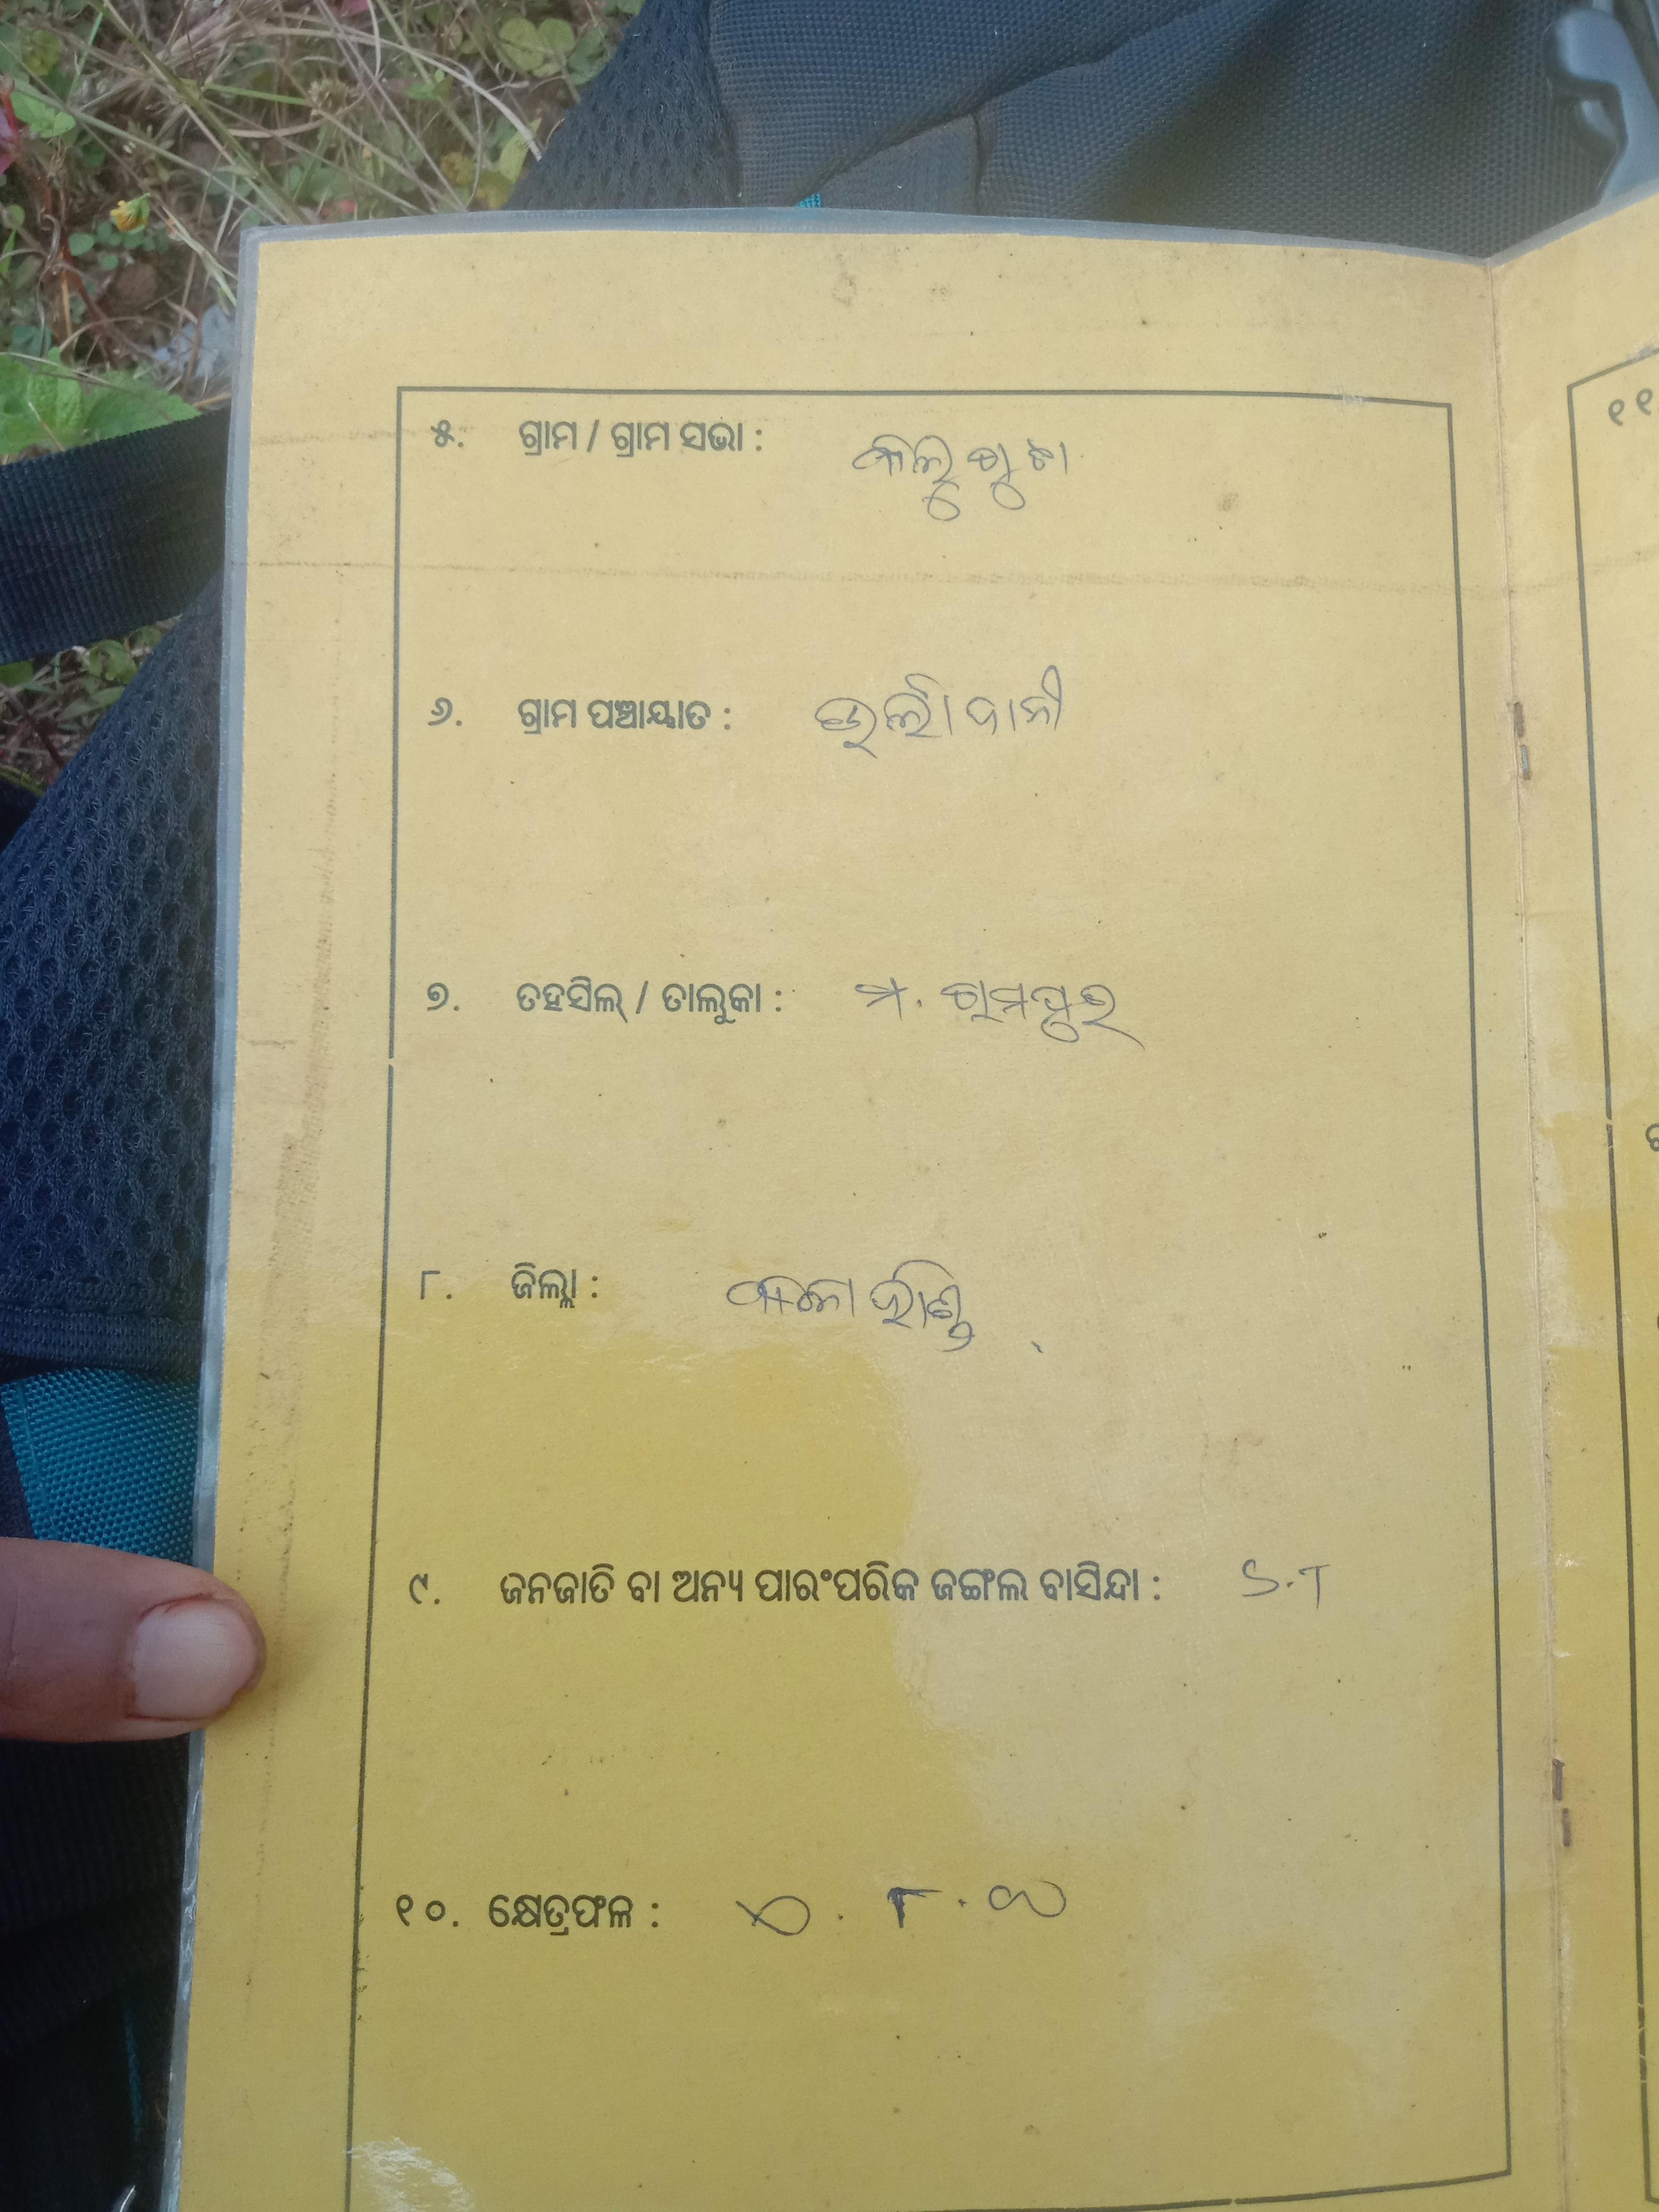 ୫. ଗ୍ରାମ / ଗ୍ରାମ ସଭା :
୬. ଗ୍ରାମ ପଞ୍ଚାୟାତ :
୭. ତହସିଲ୍ / ତାଲୁକା : ମ. ରାମପୁର
୮. ଜିଲ୍ଲା : କଳାହାଣ୍ଡି
୯. ଜନଜାତି ବା ଅନ୍ୟ ପାରଂପରିକ ଜଙ୍ଗଲ ବାସିନ୍ଦା : S.T
୧୦. କ୍ଷେତ୍ରଫଳ :
୧୧